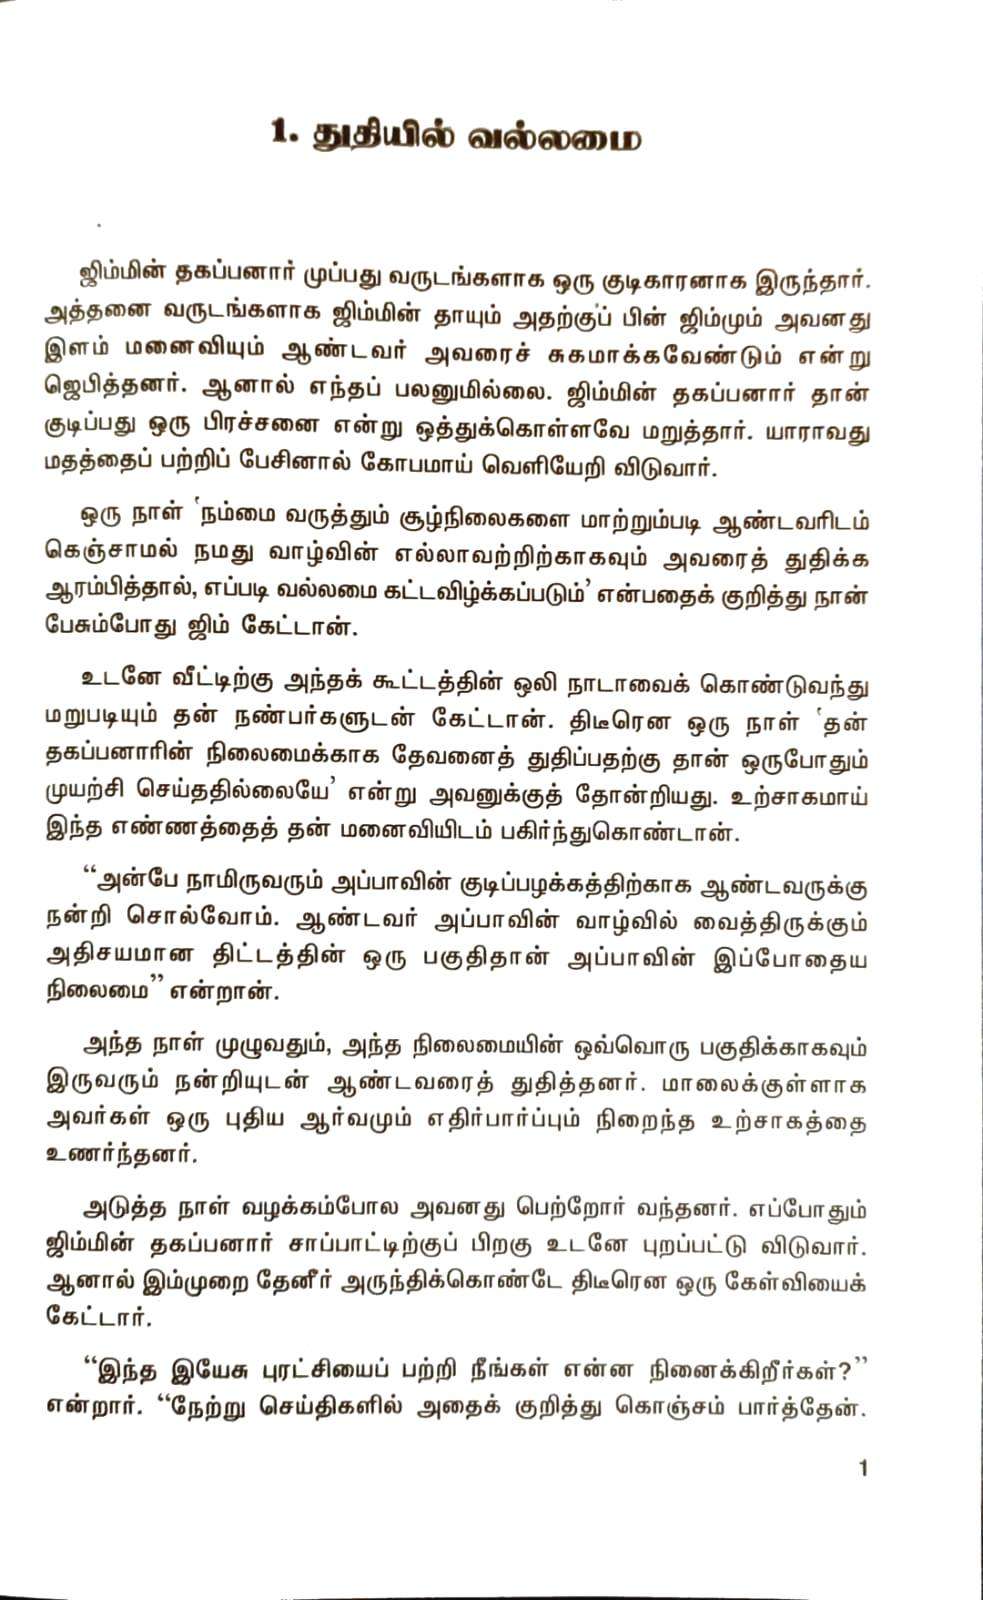 1. துதியில் வல்லமை
ஜிம்மின் தகப்பனார் முப்பது வருடங்களாக ஒரு குடிகாரனாக இருந்தார்.
அத்தனை வருடங்களாக ஜிம்மின் தாயும் அதற்குப் பின் ஜிம்மும் அவனது
இளம் மனைவியும் ஆண்டவர் அவரைச் சுகமாக்கவேண்டும் என்று
ஜெபித்தனர். ஆனால் எந்தப் பலனுமில்லை. ஜிம்மின் தகப்பனார் தான்
குடிப்பது ஒரு பிரச்சனை என்று ஒத்துக்கொள்ளவே மறுத்தார். யாராவது
மதத்தைப் பற்றிப் பேசினால் கோபமாய் வெளியேறி விடுவார்.
ஒரு நாள் ‘நம்மை வருத்தும் சூழ்நிலைகளை மாற்றும்படி ஆண்டவரிடம்
கெஞ்சாமல் நமது வாழ்வின் எல்லாவற்றிற்காகவும் அவரைத் துதிக்க
ஆரம்பித்தால், எப்படி வல்லமை கட்டவிழ்க்கப்படும்’ என்பதைக் குறித்து நான்
பேசும்போது ஜிம் கேட்டான்.
உடனே வீட்டிற்கு அந்தக் கூட்டத்தின் ஒலி நாடாவைக் கொண்டுவந்து
மறுபடியும் தன் நண்பர்களுடன் கேட்டான். திடீரென ஒரு நாள் ‘தன்
தகப்பனாரின் நிலைமைக்காக தேவனைத் துதிப்பதற்கு தான் ஒருபோதும்
முயற்சி செய்ததில்லையே’ என்று அவனுக்குத் தோன்றியது. உற்சாகமாய்
இந்த எண்ணத்தைத் தன் மனைவியிடம் பகிர்ந்துகொண்டான்.
“அன்பே நாமிருவரும் அப்பாவின் குடிப்பழக்கத்திற்காக ஆண்டவருக்கு
நன்றி சொல்வோம். ஆண்டவர் அப்பாவின் வாழ்வில் வைத்திருக்கும்
அதிசயமான திட்டத்தின் ஒரு பகுதிதான் அப்பாவின் இப்போதைய
நிலைமை” என்றான்.
அந்த நாள் முழுவதும், அந்த நிலைமையின் ஒவ்வொரு பகுதிக்காகவும்
இருவரும் நன்றியுடன் ஆண்டவரைத் துதித்தனர். மாலைக்குள்ளாக
அவர்கள் ஒரு புதிய ஆர்வமும் எதிர்பார்ப்பும் நிறைந்த உற்சாகத்தை
உணர்ந்தனர்.
அடுத்த நாள் வழக்கம்போல அவனது பெற்றோர் வந்தனர். எப்போதும்
ஜிம்மின் தகப்பனார் சாப்பாட்டிற்குப் பிறகு உடனே புறப்பட்டு விடுவார்.
ஆனால் இம்முறை தேனீர் அருந்திக்கொண்டே திடீரென ஒரு கேள்வியைக்
கேட்டார்.
“இந்த இயேசு புரட்சியைப் பற்றி நீங்கள் என்ன நினைக்கிறீர்கள்?”
என்றார். “நேற்று செய்திகளில் அதைக் குறித்து கொஞ்சம் பார்த்தேன்.
1